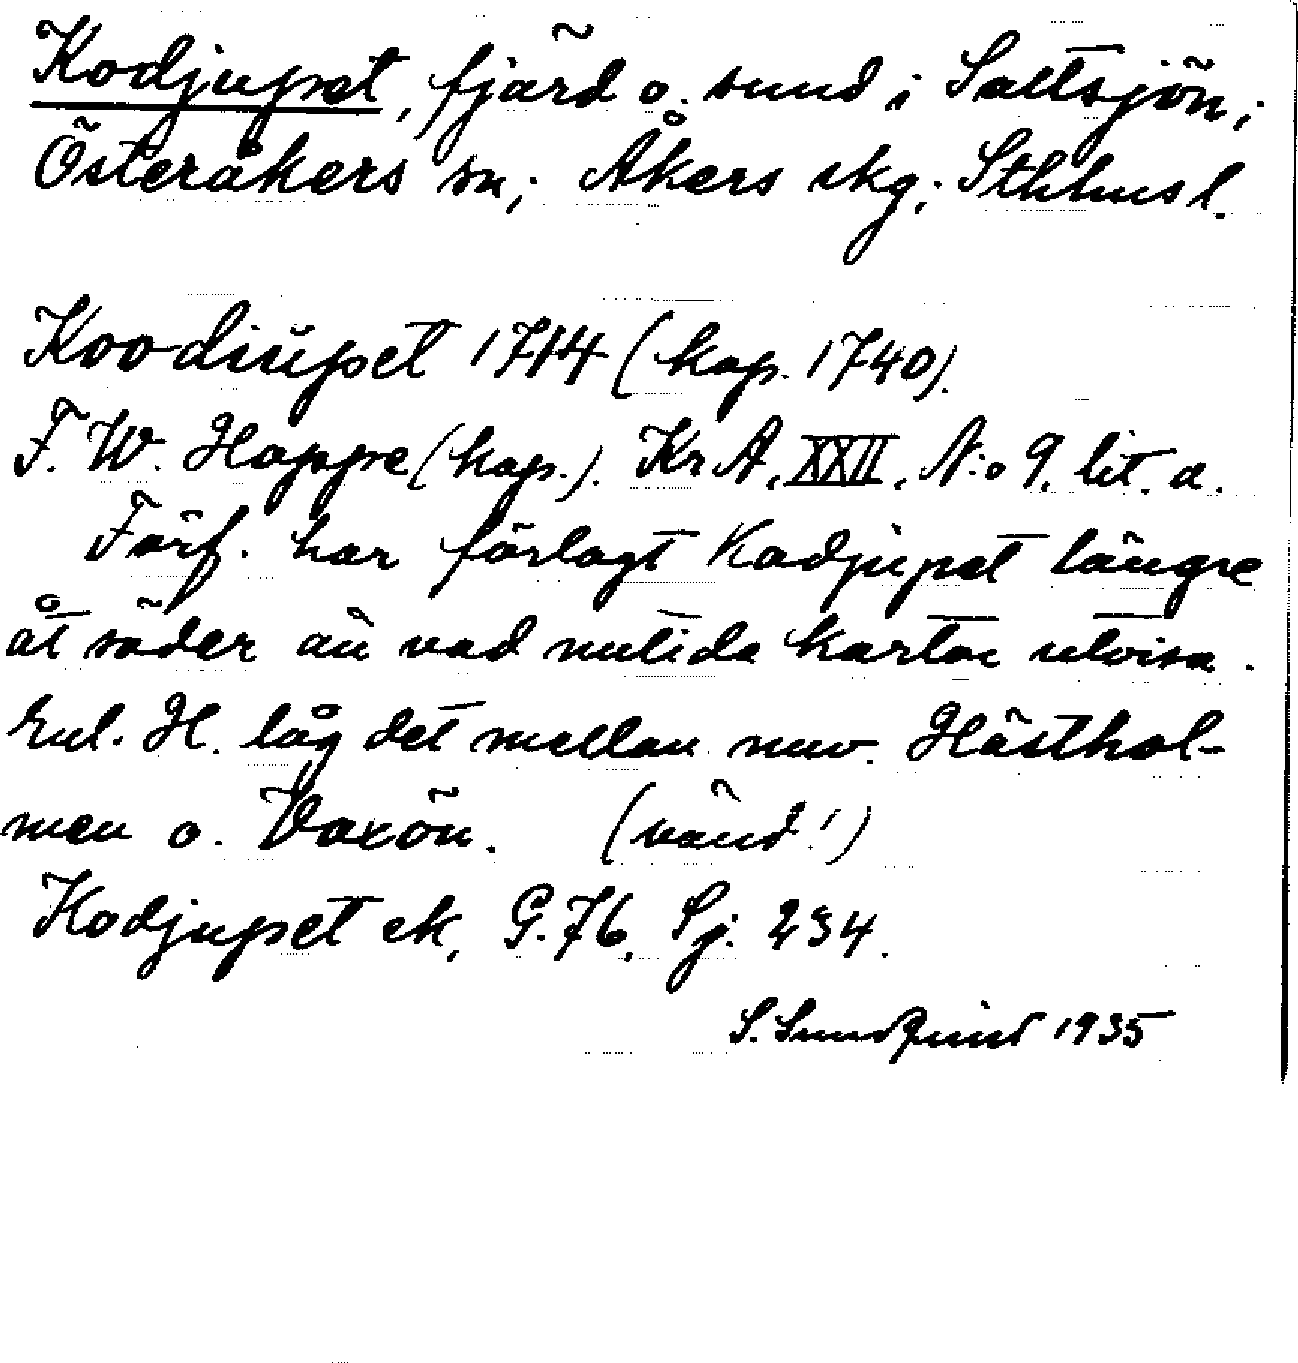 Kodjupet, fjärd o. sund i Saltsjön,
Österåkers sn; Åkers skg; Sthlms l.
Koodiupet 1714 (kop. 1740).
F. W. Hoppe (kop.). KrA, XXII, N:o 9, lit. a.
Förf. har förlagt Kodjupet längre
åt söder än vad nutida kartor utvisa.
Enl. H. låg det mellan nuv. Hästhol-
men o. Vaxön. (vänd!)
Kodjupet ek, G. 76, Sj. 234.
S. Sundquist 1935